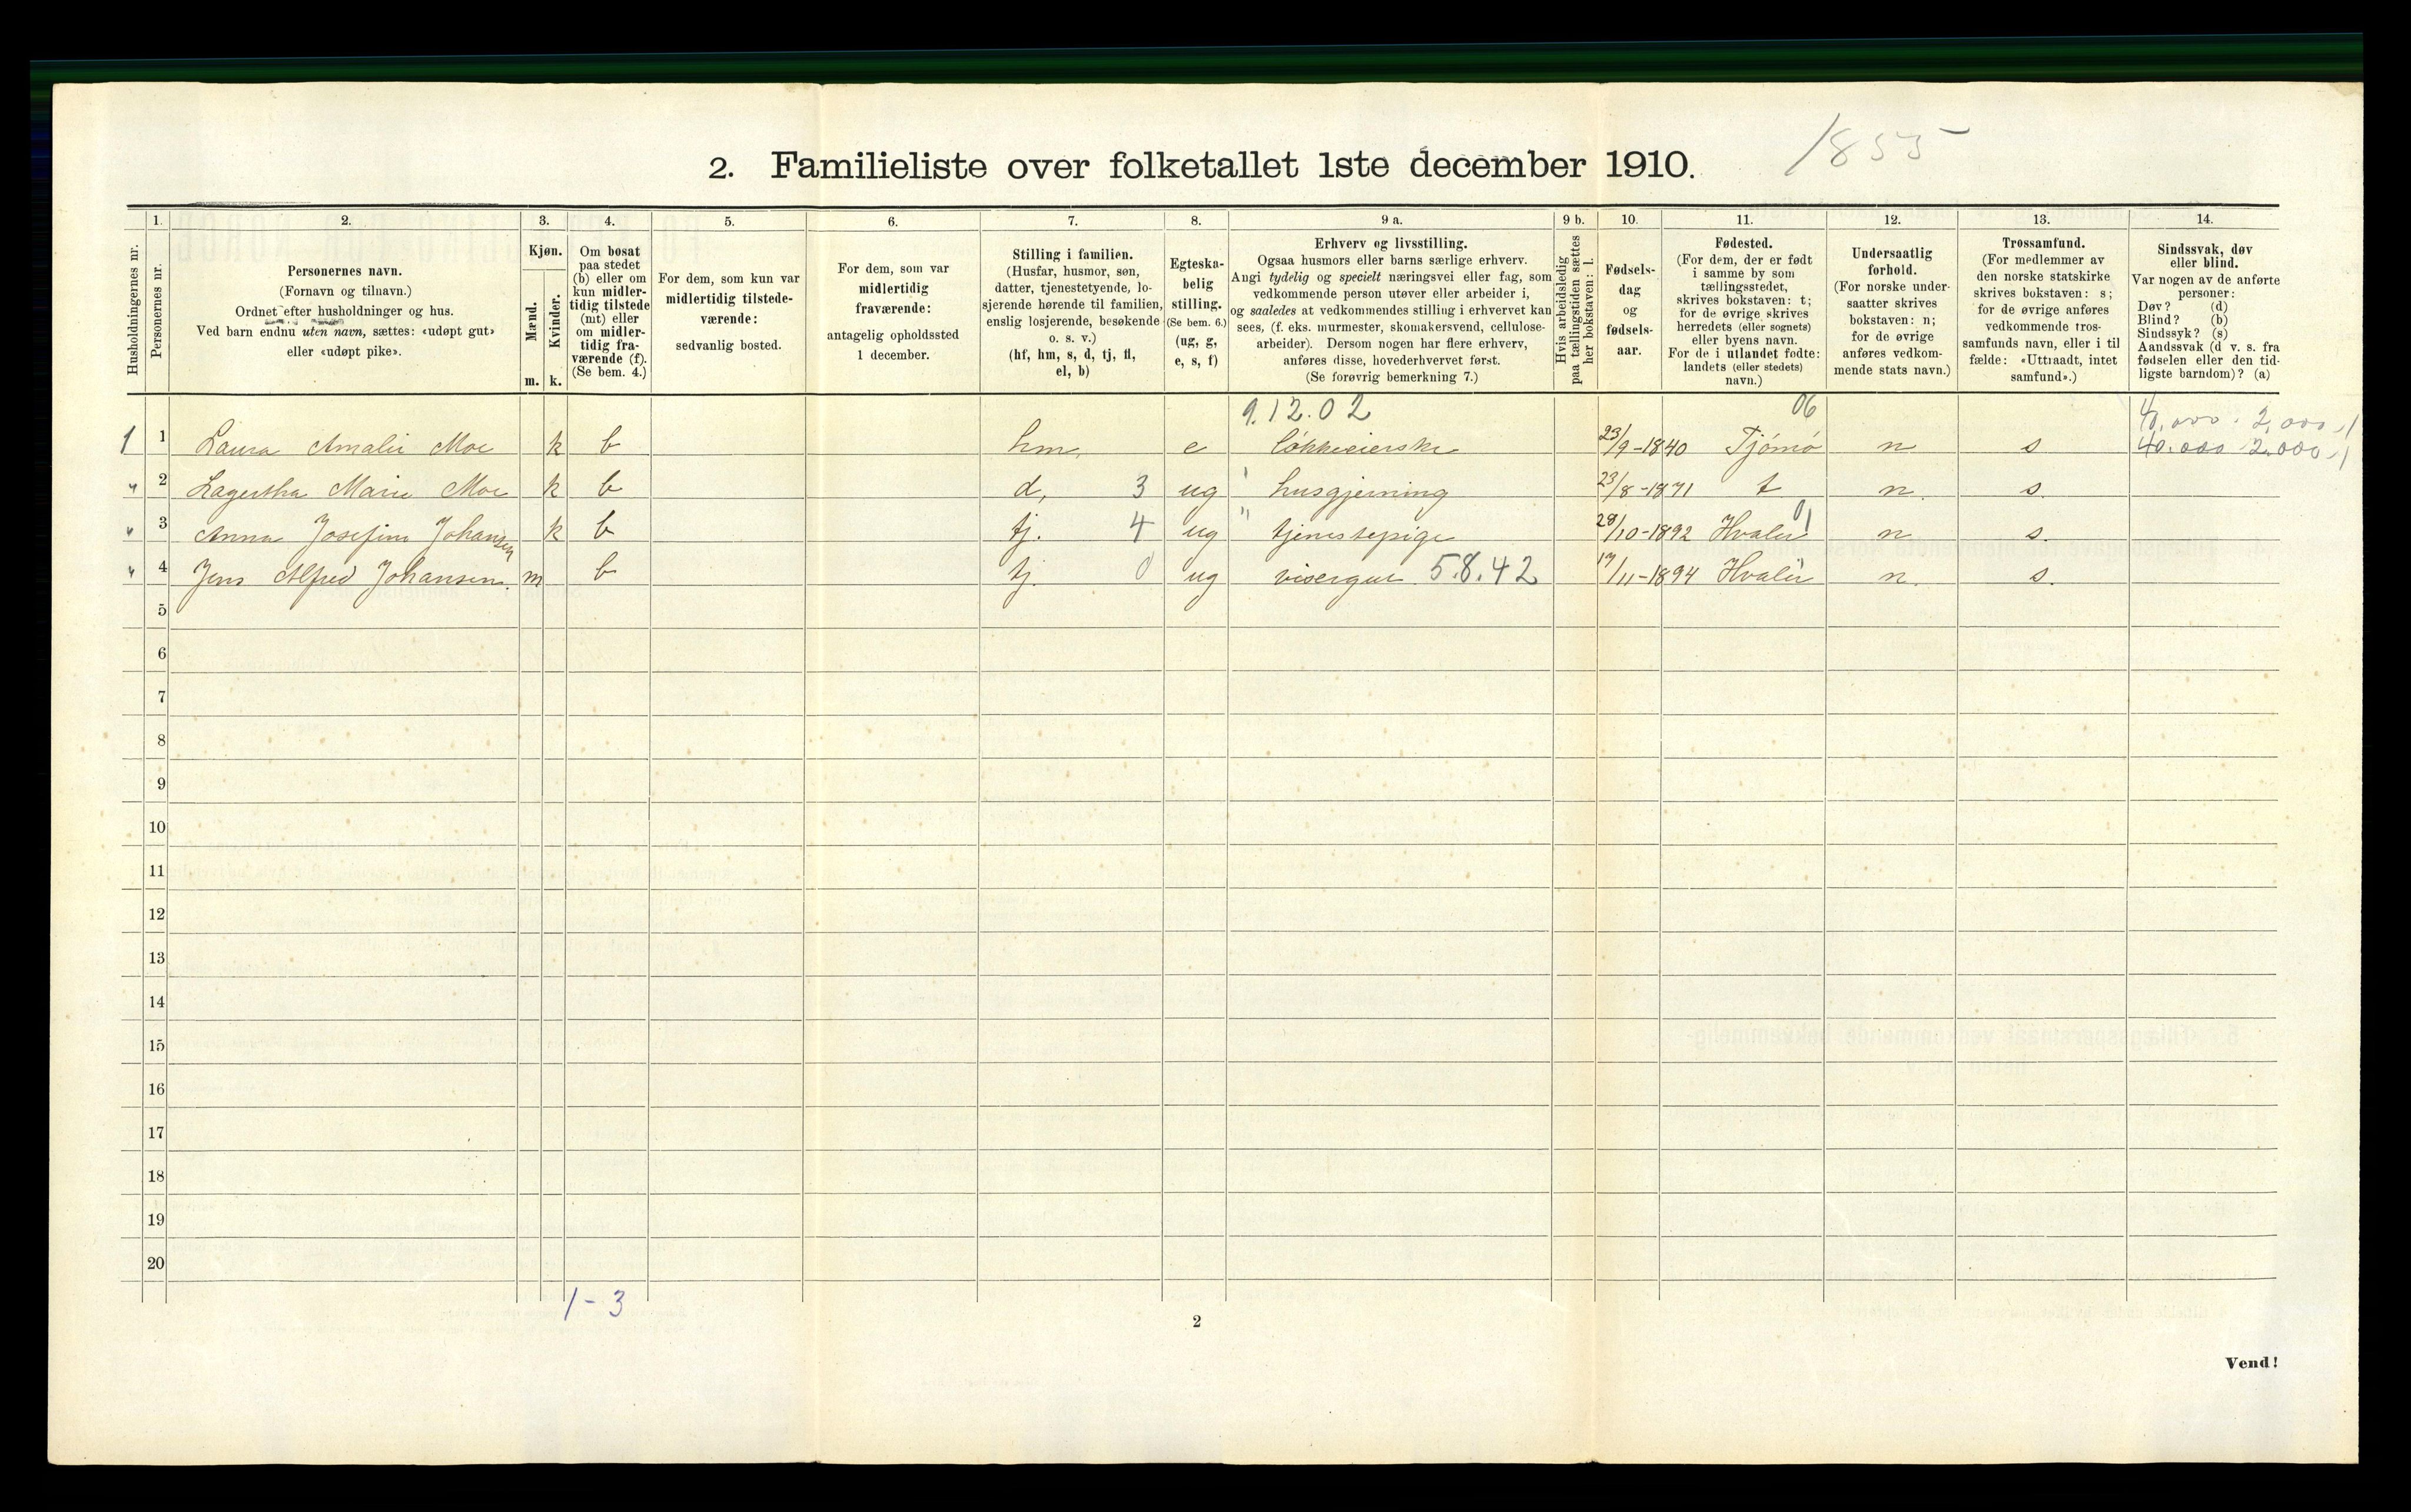 1855
2. Familieliste over folketallet 1ste december 1910.
Husholdningernes nr.
1.
Personernes nr.
2.
Personernes navn.
(Fornavn og tilnavn.)
Ordnet efter husholdninger og hus.
Ved barn endnu uten navn, sættes: «udøpt gut»
eller «udøpt pike».
3.
Kjøn.
Mænd.
m.
Kvinder.
k.
4.
Om bosat
paa stedet
(b) eller om
kun midler-
tidig tilstede
(mt) eller
om midler-
tidig fra-
værende (f).
(Se bem. 4.)
5.
For dem, som kun var
midlertidig tilstede-
værende:
sedvanlig bosted.
6.
For dem, som var
midlertidig
fraværende:
antagelig opholdssted
1 december.
7.
Stilling i familien.
(Husfar, husmor, søn,
datter, tjenestetyende, lo-
sjerende hørende til familien,
enslig losjerende, besøkende
o. s. v.)
(hf, hm, s, d, tj, fl,
el, b)
8.
Egteska-
belig
stilling.
(Se bem. 6.)
(ug, g,
e, s, f)
9 a.
Erhverv og livsstilling.
Ogsaa husmors eller barns særlige erhverv.
Angi tydelig og specielt næringsvei eller fag, som
vedkommende person utøver eller arbeider i,
og saaledes at vedkommendes stilling i erhvervet kan
sees, (f. eks. murmester, skomakersvend, cellulose-
arbeider). Dersom nogen har flere erhverv,
anføres disse, hovederhvervet først.
(Se forøvrig bemerkning 7.)
9 b.
Hvis arbeidsledig
paa tællingstiden sættes
her bokstaven: l.
10.
Fødsels-
dag
og
fødsels-
aar.
11.
Fødested.
(For dem, der er født
i samme by som
tællingsstedet,
skrives bokstaven: t;
for de øvrige skrives
herredets (eller sognets)
eller byens navn.
For de i utlandet fødte:
landets (eller stedets)
navn.)
12.
Undersaatlig
forhold.
(For norske under-
saatter skrives
bokstaven: n;
for de øvrige
anføres vedkom-
mende stats navn.)
13.
Trossamfund.
(For medlemmer av
den norske statskirke
skrives bokstaven: s;
for de øvrige anføres
vedkommende tros-
samfunds navn, eller i til
fælde: «Uttraadt, intet
samfund».)
14.
Sindssvak, døv
eller blind.
Var nogen av de anførte
personer:
Døv? (d)
Blind? (b)
Sindssyk? (s)
Aandssvak (d v. s. fra
fødselen eller den tid-
ligste barndom)? (a)
9.12.02 06 40,000 . 2,000 . 1
1 1 Laura Amalie Moe k b hm, e løkkeeierske 23/9-1840 Tjömö n s 40.000 2.000 . 1
" 2 Lagertha Marie Moe k b d, 3 ug husgjerning 23/8-1871 t n. s
" 3 Anna Josefine Johansen k b tj. 4 ug " tjenestepige 28/10-1892 Hvaler 01 n s.
" 4 Jens Alfred Johansen. m b tj. 0 ug visergut 5.8.42 17/11-1894 Hvaler n. s.
5
6
7
8
9
10
11
12
13
14
15
16
17
18
19
20
1-3
2
Vend!